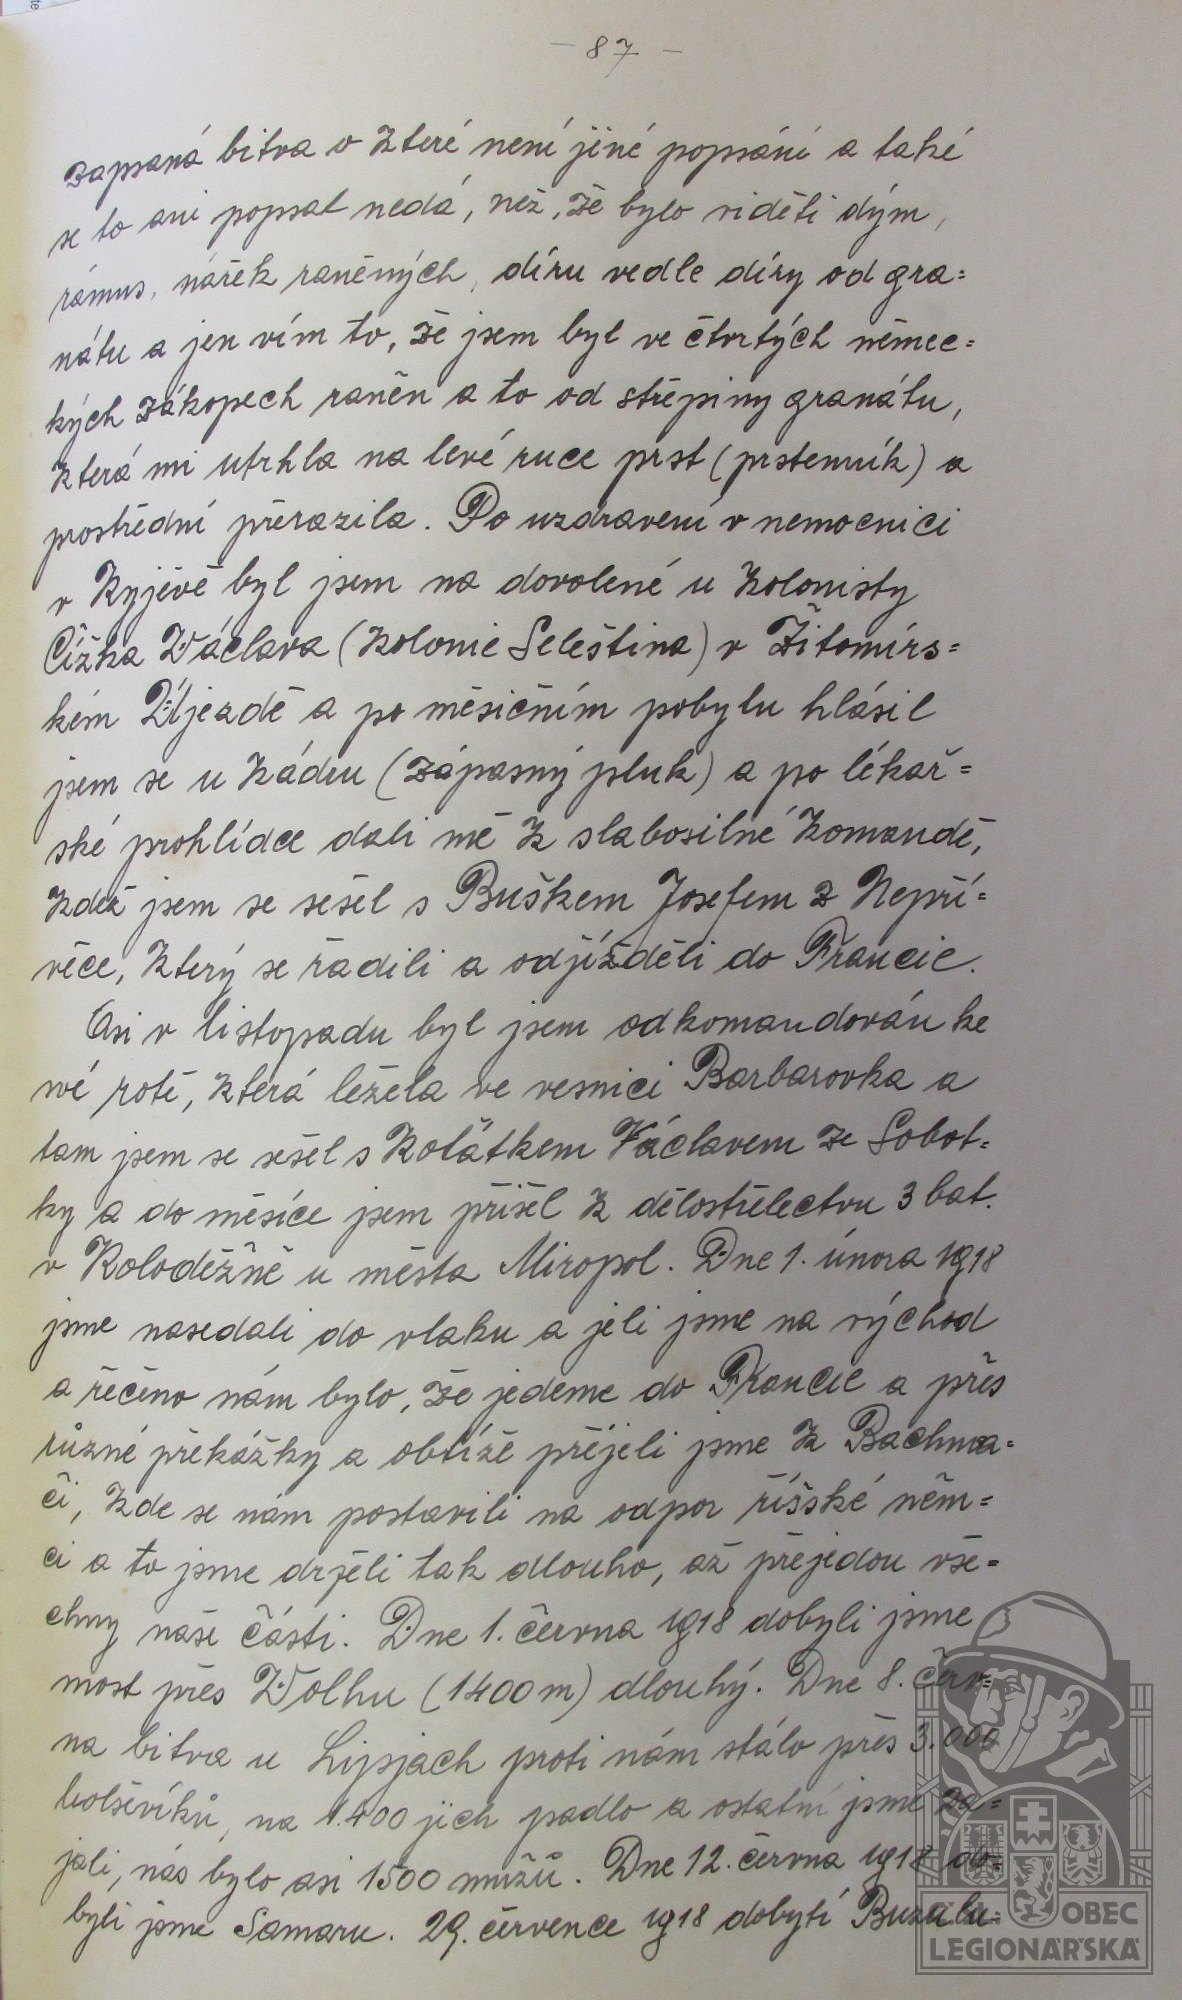 - 87 -
zapsaná bitva o které není jiné popsání a také
se to ani popsat nedá, než, že bylo viděti dým,
rámus, nářek raněných, díru vedle díry od gra=
nátu a jen vím to, že jsem byl ve čtvrtých němec=
kých zákopech raněn a to od střepiny granátu,
která mi utrhla na levé ruce prst (prstenník) a
prostřední přerazila. Po uzdravení v nemocnici
v Kyjevě byl jsem na dovolené u kolonisty
Čížka Václava (kolonie Seleština) v Žitomírs=
kém Újezdě a po měsíčním pobytu hlásil
jsem se u kádru (zápasný pluk) a po lékař=
ské prohlídce dali mě k slabosilné komandě,
kdež jsem se sešel s Buškem Josefem z Nepří=
věce, který se řadili a odjížděli do Francie.
Asi v listopadu byl jsem odkomandován ke
své rotě, která ležela ve vesnici Barbarovka a
tam jsem se sešel s Kolátkem Václavem ze Sobot=
ky a do měsíce jsem přišel k dělostřelectvu 3 bat.
v Koloděžně u města Miropol. Dne 1. února 1918
jsme nasedali do vlaku a jeli jsme na východ
a řečeno nám bylo, že jedeme do Francie a přes
různé překážky a obtíže přejeli jsme k Bachma=
či, kde se nám postavili na odpor říšské něm=
ci a to jsme drželi tak dlouho, až přejedou vše=
chny naše části. Dne 1. června 1918 dobyli jsme
most přes Volhu (1400m) dlouhý. Dne 8. červ=
na bitva u Lipjach proti nám stálo přes 3.000
bolševíků, na 1.400 jich padlo a ostatní jsme za=
jali, nás bylo asi 1500 mužů. Dne 12. června 1918 do=
byli jsme Samaru. 29. července 1918 dobytí Buzulu=
OBEC
LEGIONÁŘSKÁ